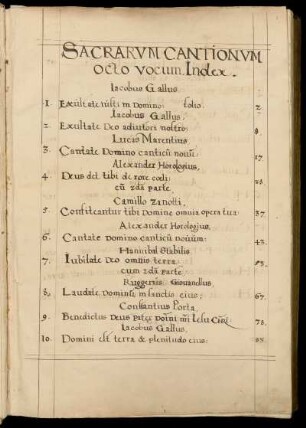 SACRARVM CANTIONVM
octo vocum. Index.
Iacobus Gallus.
1. Exultate iusti in Domino: folio. 2.
Iacobus Gallus.
2. Exultate Deo adiutori nostro:
Lucas Marentius.
3. Cantate Domino canticũ nouũ: 17
Alexander Horologius,
4. Deus det tibi de rore coeli:
cũ 2dã parte.
Camillo Zanotti,
5. Confiteantur tibi Domine omnia opera tua: 37.
Alexander Horologius,
6. Cantate Domino canticũ nouum: 43.
Hanibal Stabilis
7. Iubilate Deo omnis terra: 53.
cum 2dã parte
Ruggerus Giouanellus.
8. Laudate Dominũ in sanctis eius: 67.
Constantius Porta,
9. Benedictus Deus Pater Domini nri Iesu 78.
Iacobus Gallus.
10. Domini est terra & plenitudo eius: 85.